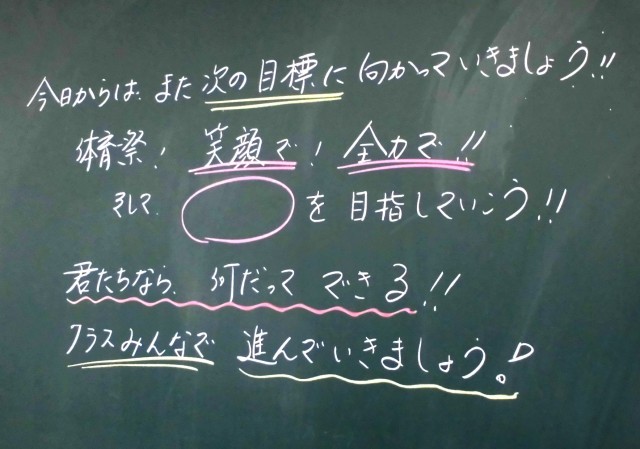 今日からは、また次の目標に向かっていきましょう!!
体育祭! 笑顔で! 全力で!!
そして、 を目指していこう!!
君たちなら、何だってできる!!
クラスみんなで 進んでいきましょう!